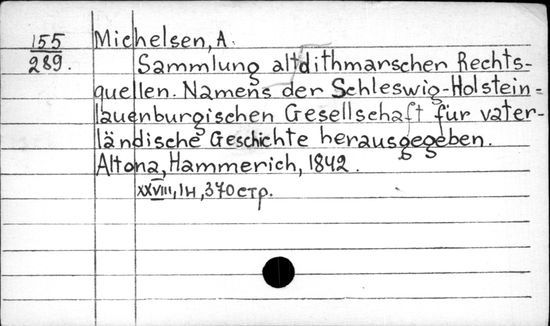 155 Michelsen, A.
289. Sammlung altdithmarscher Rechts-
quellen. Namens der Schleswig-Holstein=
lauenburgischen Gesellschaft für vater-
ländische Geschichte herausgegeben.
Altona, Hammerich, 1842.
XXVIII, 1н, 370 стр.